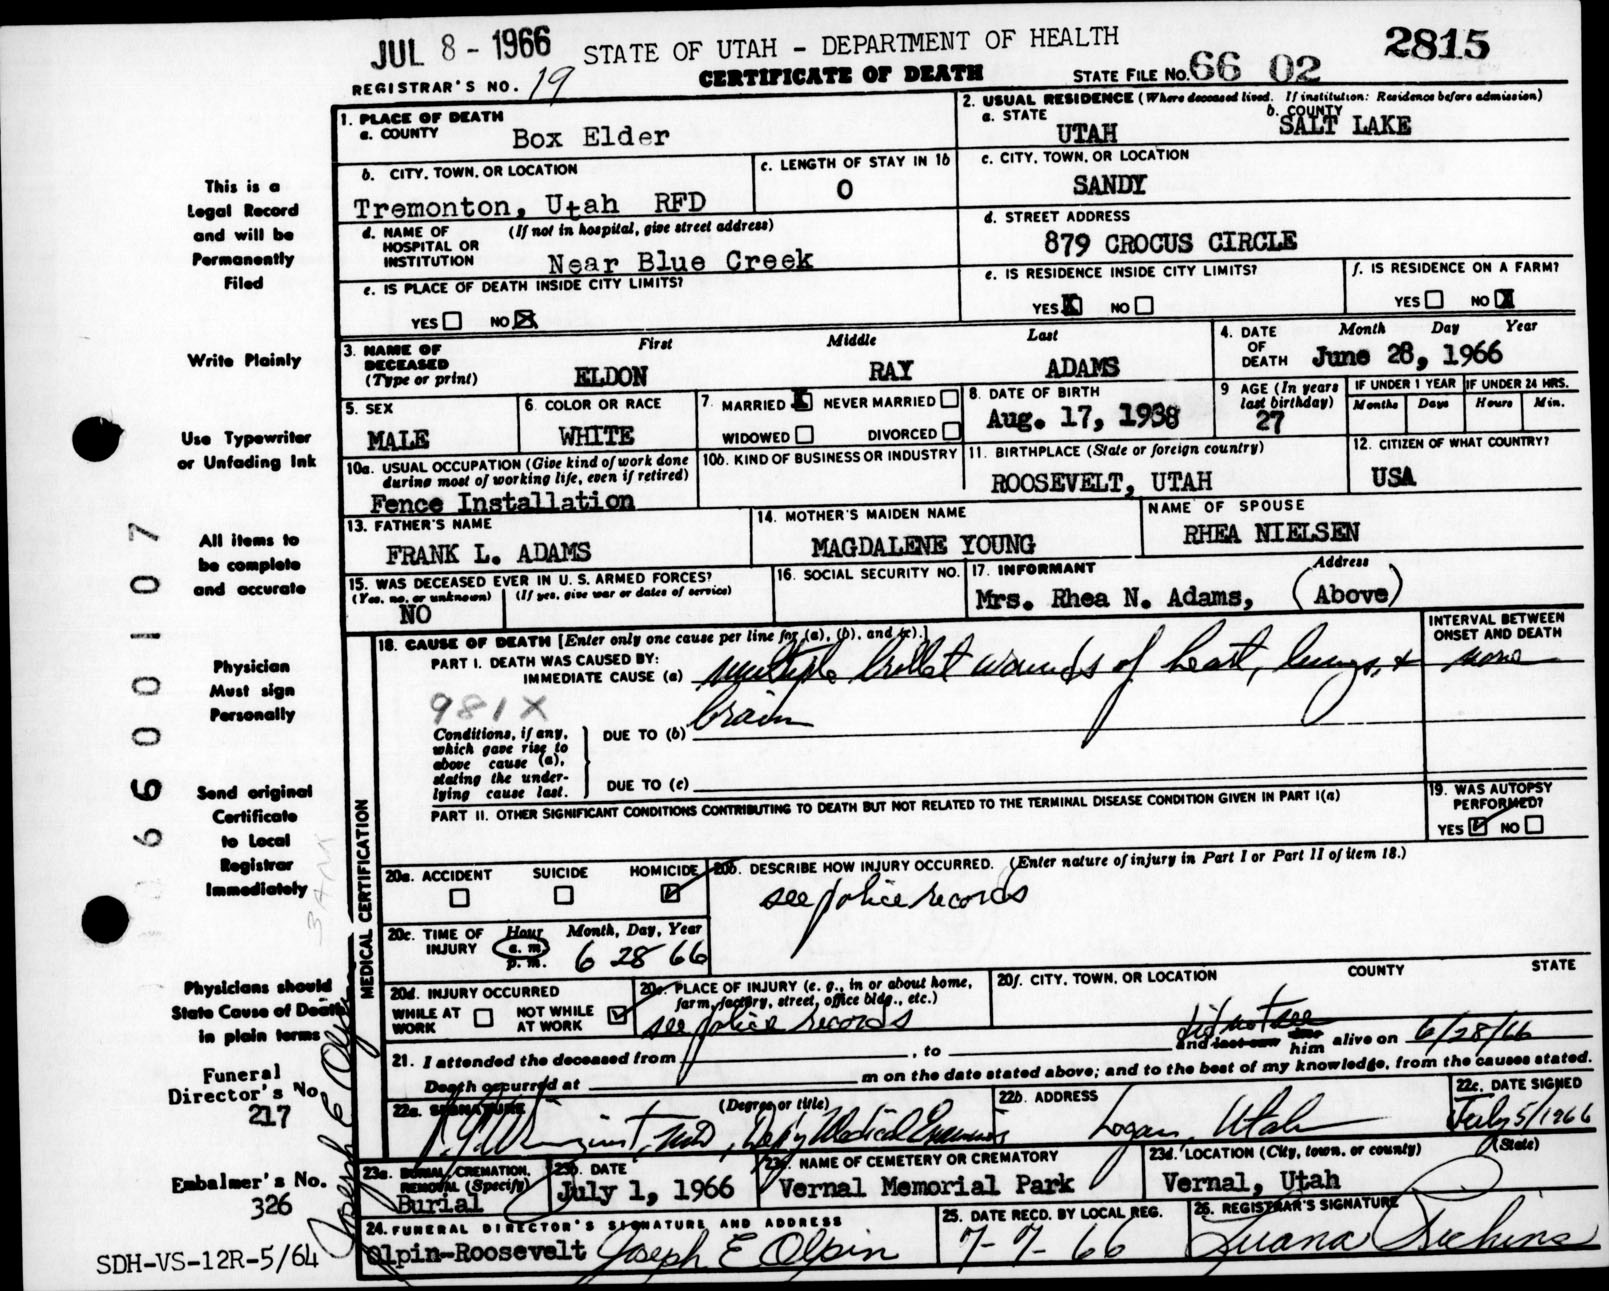 JUL 8 - 1966
STATE OF UTAH - DEPARTMENT OF HEALTH
2815
REGISTRAR'S NO. 19
CERTIFICATE OF DEATH
STATE FILE NO. 66 02
1. PLACE OF DEATH
a. COUNTY Box Elder
2. USUAL RESIDENCE (Where deceased lived. If institution: Residence before admission)
a. STATE UTAH
b. COUNTY SALT LAKE
b. CITY, TOWN, OR LOCATION
Tremonton, Utah RFD
c. LENGTH OF STAY IN 1b
0
c. CITY, TOWN, OR LOCATION
SANDY
d. NAME OF HOSPITAL OR INSTITUTION (If not in hospital, give street address)
Near Blue Creek
d. STREET ADDRESS
879 CROCUS CIRCLE
e. IS PLACE OF DEATH INSIDE CITY LIMITS?
YES NO X
e. IS RESIDENCE INSIDE CITY LIMITS?
YES X NO
f. IS RESIDENCE ON A FARM?
YES NO X
3. NAME OF DECEASED (Type or print)
First Middle Last
ELDON RAY ADAMS
4. DATE OF DEATH Month Day Year
June 28, 1966
5. SEX
MALE
6. COLOR OR RACE
WHITE
7. MARRIED X NEVER MARRIED
WIDOWED DIVORCED
8. DATE OF BIRTH
Aug. 17, 1938
9 AGE (In years last birthday)
27
IF UNDER 1 YEAR IF UNDER 24 HRS.
Months Days Hours Min.
10a. USUAL OCCUPATION (Give kind of work done during most of working life, even if retired)
Fence Installation
10b. KIND OF BUSINESS OR INDUSTRY
11. BIRTHPLACE (State or foreign country)
ROOSEVELT, UTAH
12. CITIZEN OF WHAT COUNTRY?
USA
13. FATHER'S NAME
FRANK L. ADAMS
14. MOTHER'S MAIDEN NAME
MAGDALENE YOUNG
NAME OF SPOUSE
RHEA NIELSEN
15. WAS DECEASED EVER IN U. S. ARMED FORCES?
(Yes, no, or unknown) (If yes, give war or dates of service)
NO
16. SOCIAL SECURITY NO.
17. INFORMANT Address
Mrs. Rhea N. Adams, (Above)
MEDICAL CERTIFICATION
18. CAUSE OF DEATH [Enter only one cause per line for (a), (b), and (c).]
INTERVAL BETWEEN ONSET AND DEATH
PART I. DEATH WAS CAUSED BY:
IMMEDIATE CAUSE (a) multiple bullet wounds of heart, lungs, & none
brain
981X
Conditions, if any, which gave rise to above cause (a), stating the underlying cause last.
DUE TO (b)
DUE TO (c)
PART II. OTHER SIGNIFICANT CONDITIONS CONTRIBUTING TO DEATH BUT NOT RELATED TO THE TERMINAL DISEASE CONDITION GIVEN IN PART I(a)
19. WAS AUTOPSY PERFORMED?
YES NO
20a. ACCIDENT SUICIDE HOMICIDE
20b. DESCRIBE HOW INJURY OCCURRED. (Enter nature of injury in Part I or Part II of item 18.)
see police records
20c. TIME OF INJURY Hour Month, Day, Year
a. m.
p. m. 6 28 66
20d. INJURY OCCURRED
WHILE AT WORK NOT WHILE AT WORK
20e. PLACE OF INJURY (e. g., in or about home, farm, factory, street, office bldg., etc.)
see police records
20f. CITY, TOWN, OR LOCATION COUNTY STATE
did not see
21. I attended the deceased from , to and last saw him alive on 6/28/66
Death occurred at m on the date stated above; and to the best of my knowledge, from the causes stated.
22a. SIGNATURE (Degree or title)
Medical Examiner
22b. ADDRESS
Logan, Utah
22c. DATE SIGNED
July 5/1966
23a. BURIAL, CREMATION, REMOVAL (Specify)
Burial
23b. DATE
July 1, 1966
23c. NAME OF CEMETERY OR CREMATORY
Vernal Memorial Park
23d. LOCATION (City, town, or county) (State)
Vernal, Utah
24. FUNERAL DIRECTOR'S SIGNATURE AND ADDRESS
Olpin-Roosevelt Joseph E Olpin
25. DATE RECD. BY LOCAL REG.
7-7-66
26. REGISTRAR'S SIGNATURE
Luana
This is a
Legal Record
and will be
Permanently
Filed
Write Plainly
Use Typewriter
or Unfading Ink
All items to
be complete
and accurate
Physician
Must sign
Personally
Send original
Certificate
to Local
Registrar
Immediately
Physicians should
State Cause of Death
in plain terms
Funeral
Director's No.
217
Embalmer's No.
326
Joseph E Olpin
6600107
SDH-VS-12R-5/64